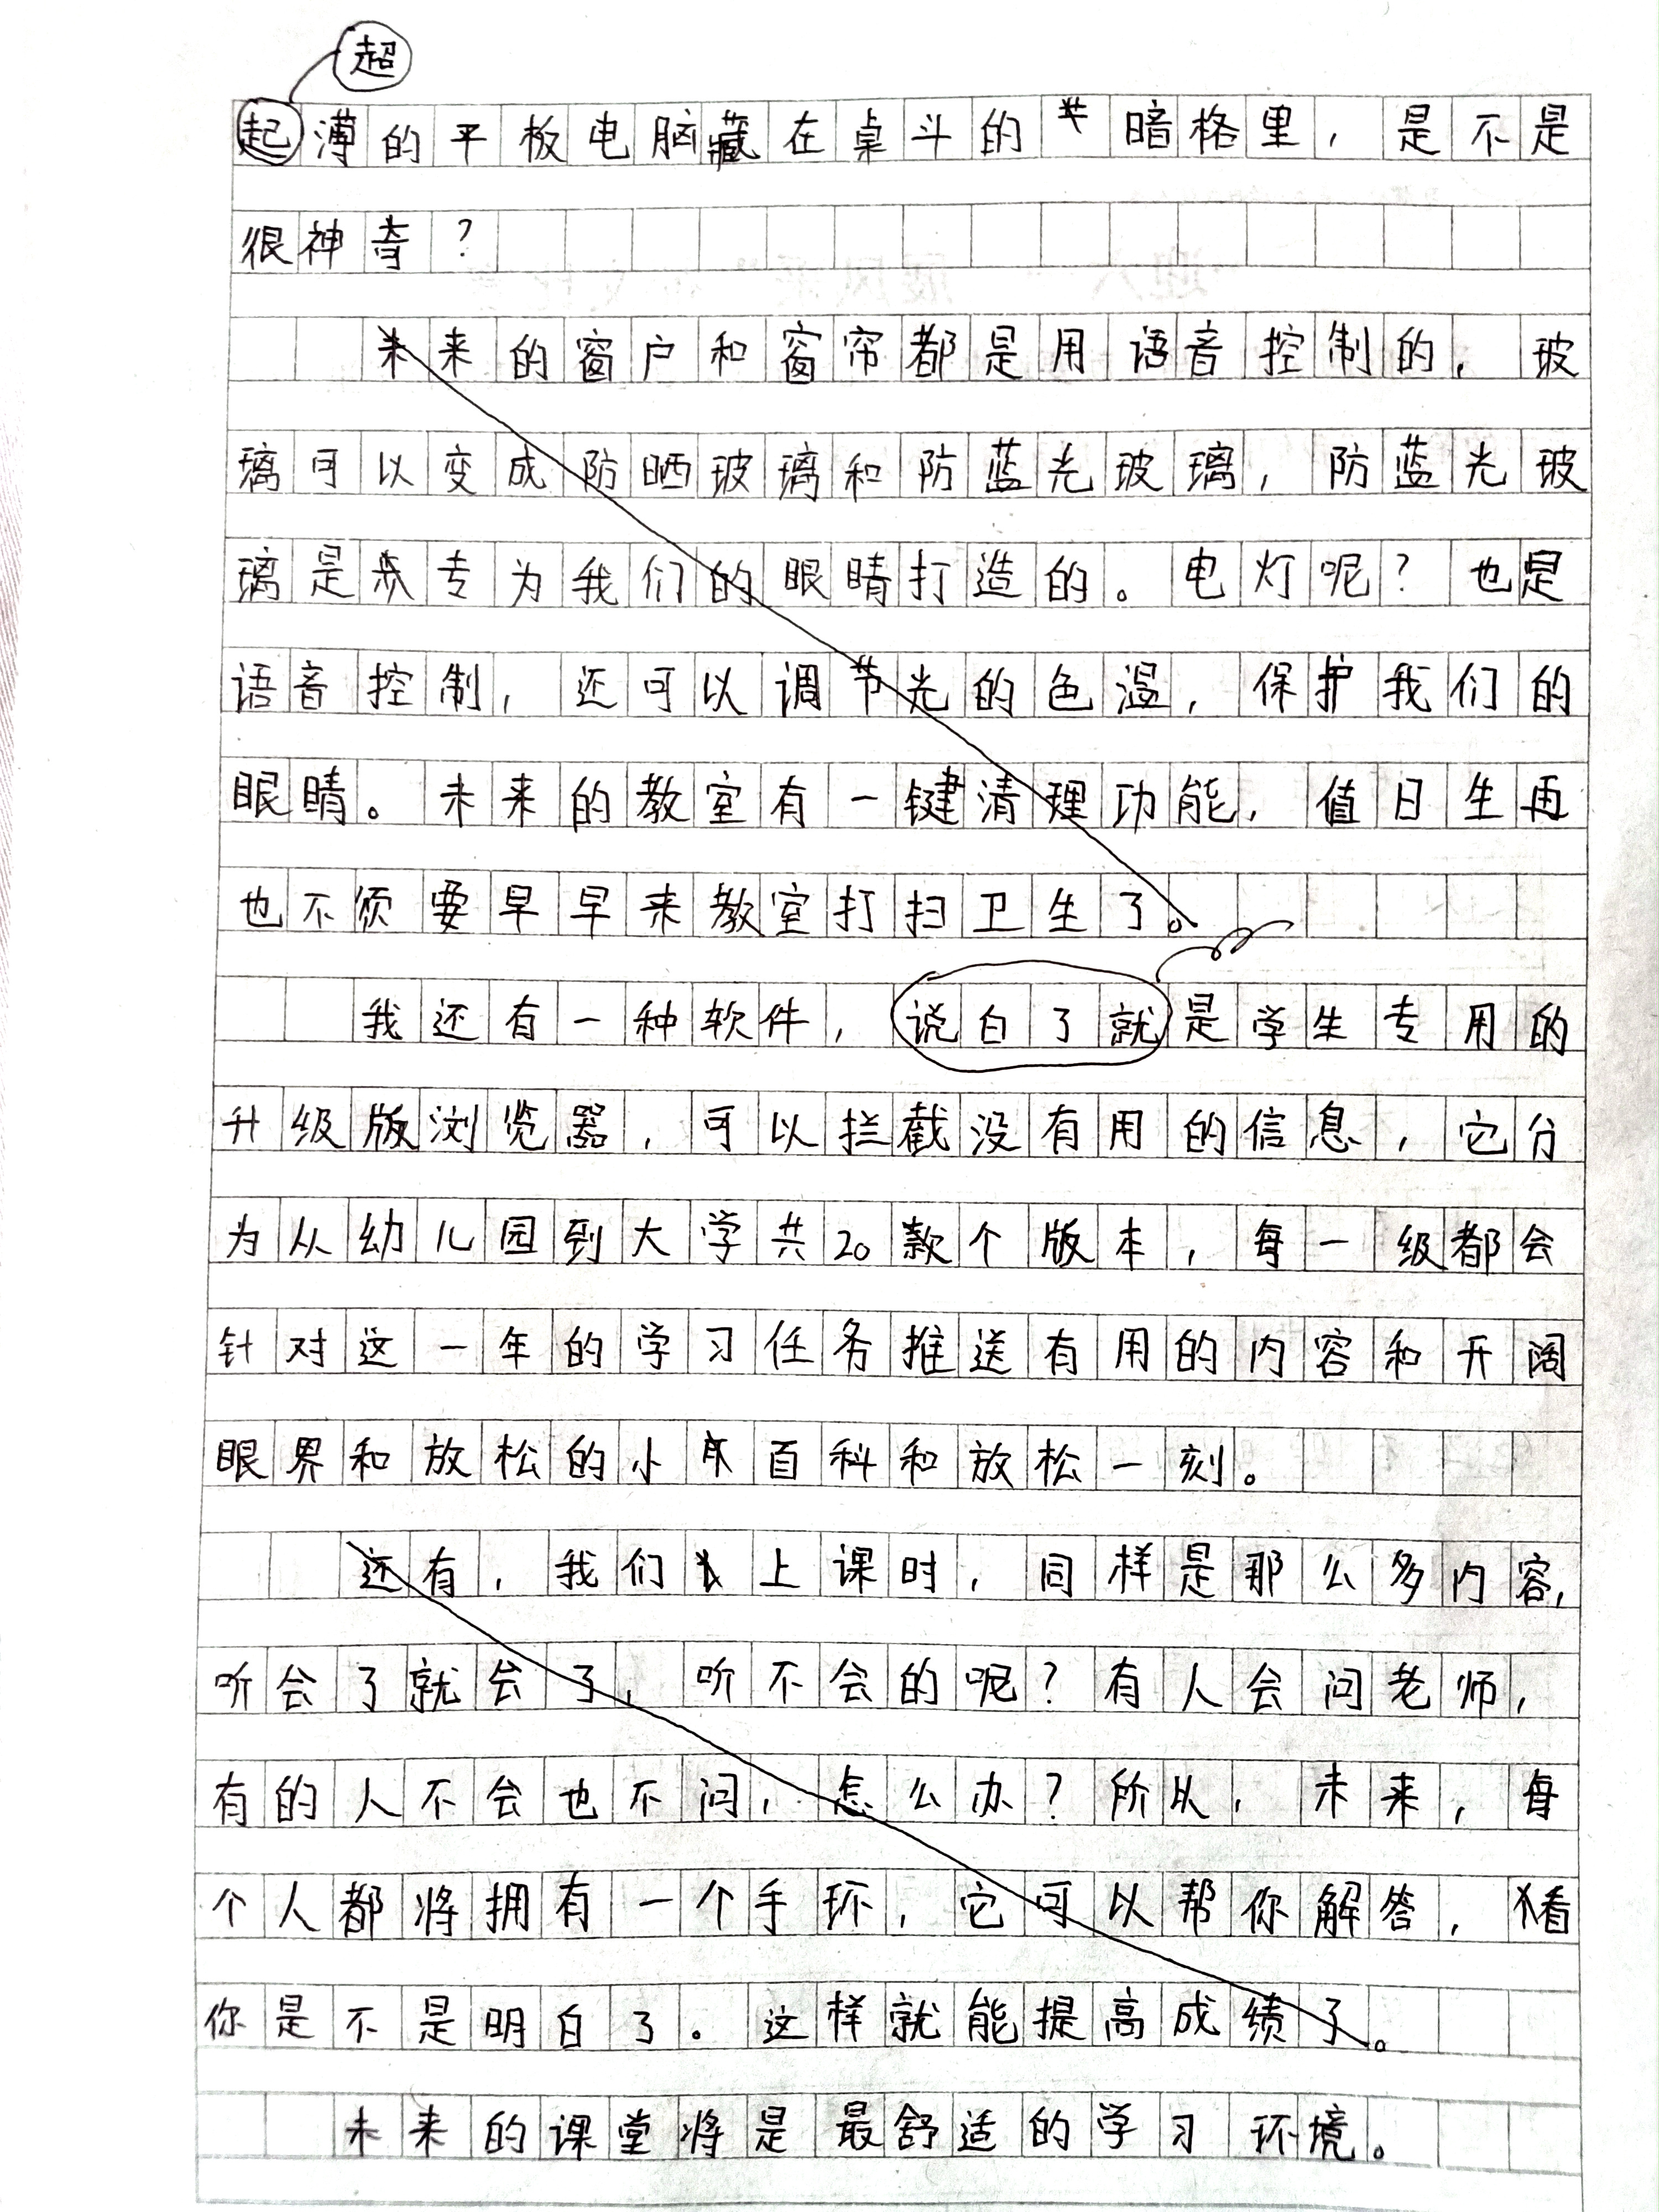 超
起薄的平板电脑藏在桌斗的暗格里，是不是
很神奇？
未来的窗户和窗帘都是用语音控制的，玻
璃可以变成防晒玻璃和防蓝光玻璃，防蓝光玻
璃是专为我们的眼睛打造的。电灯呢？也是
语音控制，还可以调节光的色温，保护我们的
眼睛。未来的教室有一键清理功能，值日生再
也不须要早早来教室打扫卫生了。
我还有一种软件，说白了就是学生专用的
升级版浏览器，可以拦截没有用的信息，它分
为从幼儿园到大学共20款个版本，每一级都会
针对这一年的学习任务推送有用的内容和开阔
眼界和放松的小百科和放松一刻。
还有，我们上课时，同样是那么多内容，
听会了就会了，听不会的呢？有人会问老师，
有的人不会也不问，怎么办？所以，未来，每
个人都将拥有一个手环，它可以帮你解答，看
你是不是明白了。这样就能提高成绩了。
未来的课堂将是最舒适的学习环境。